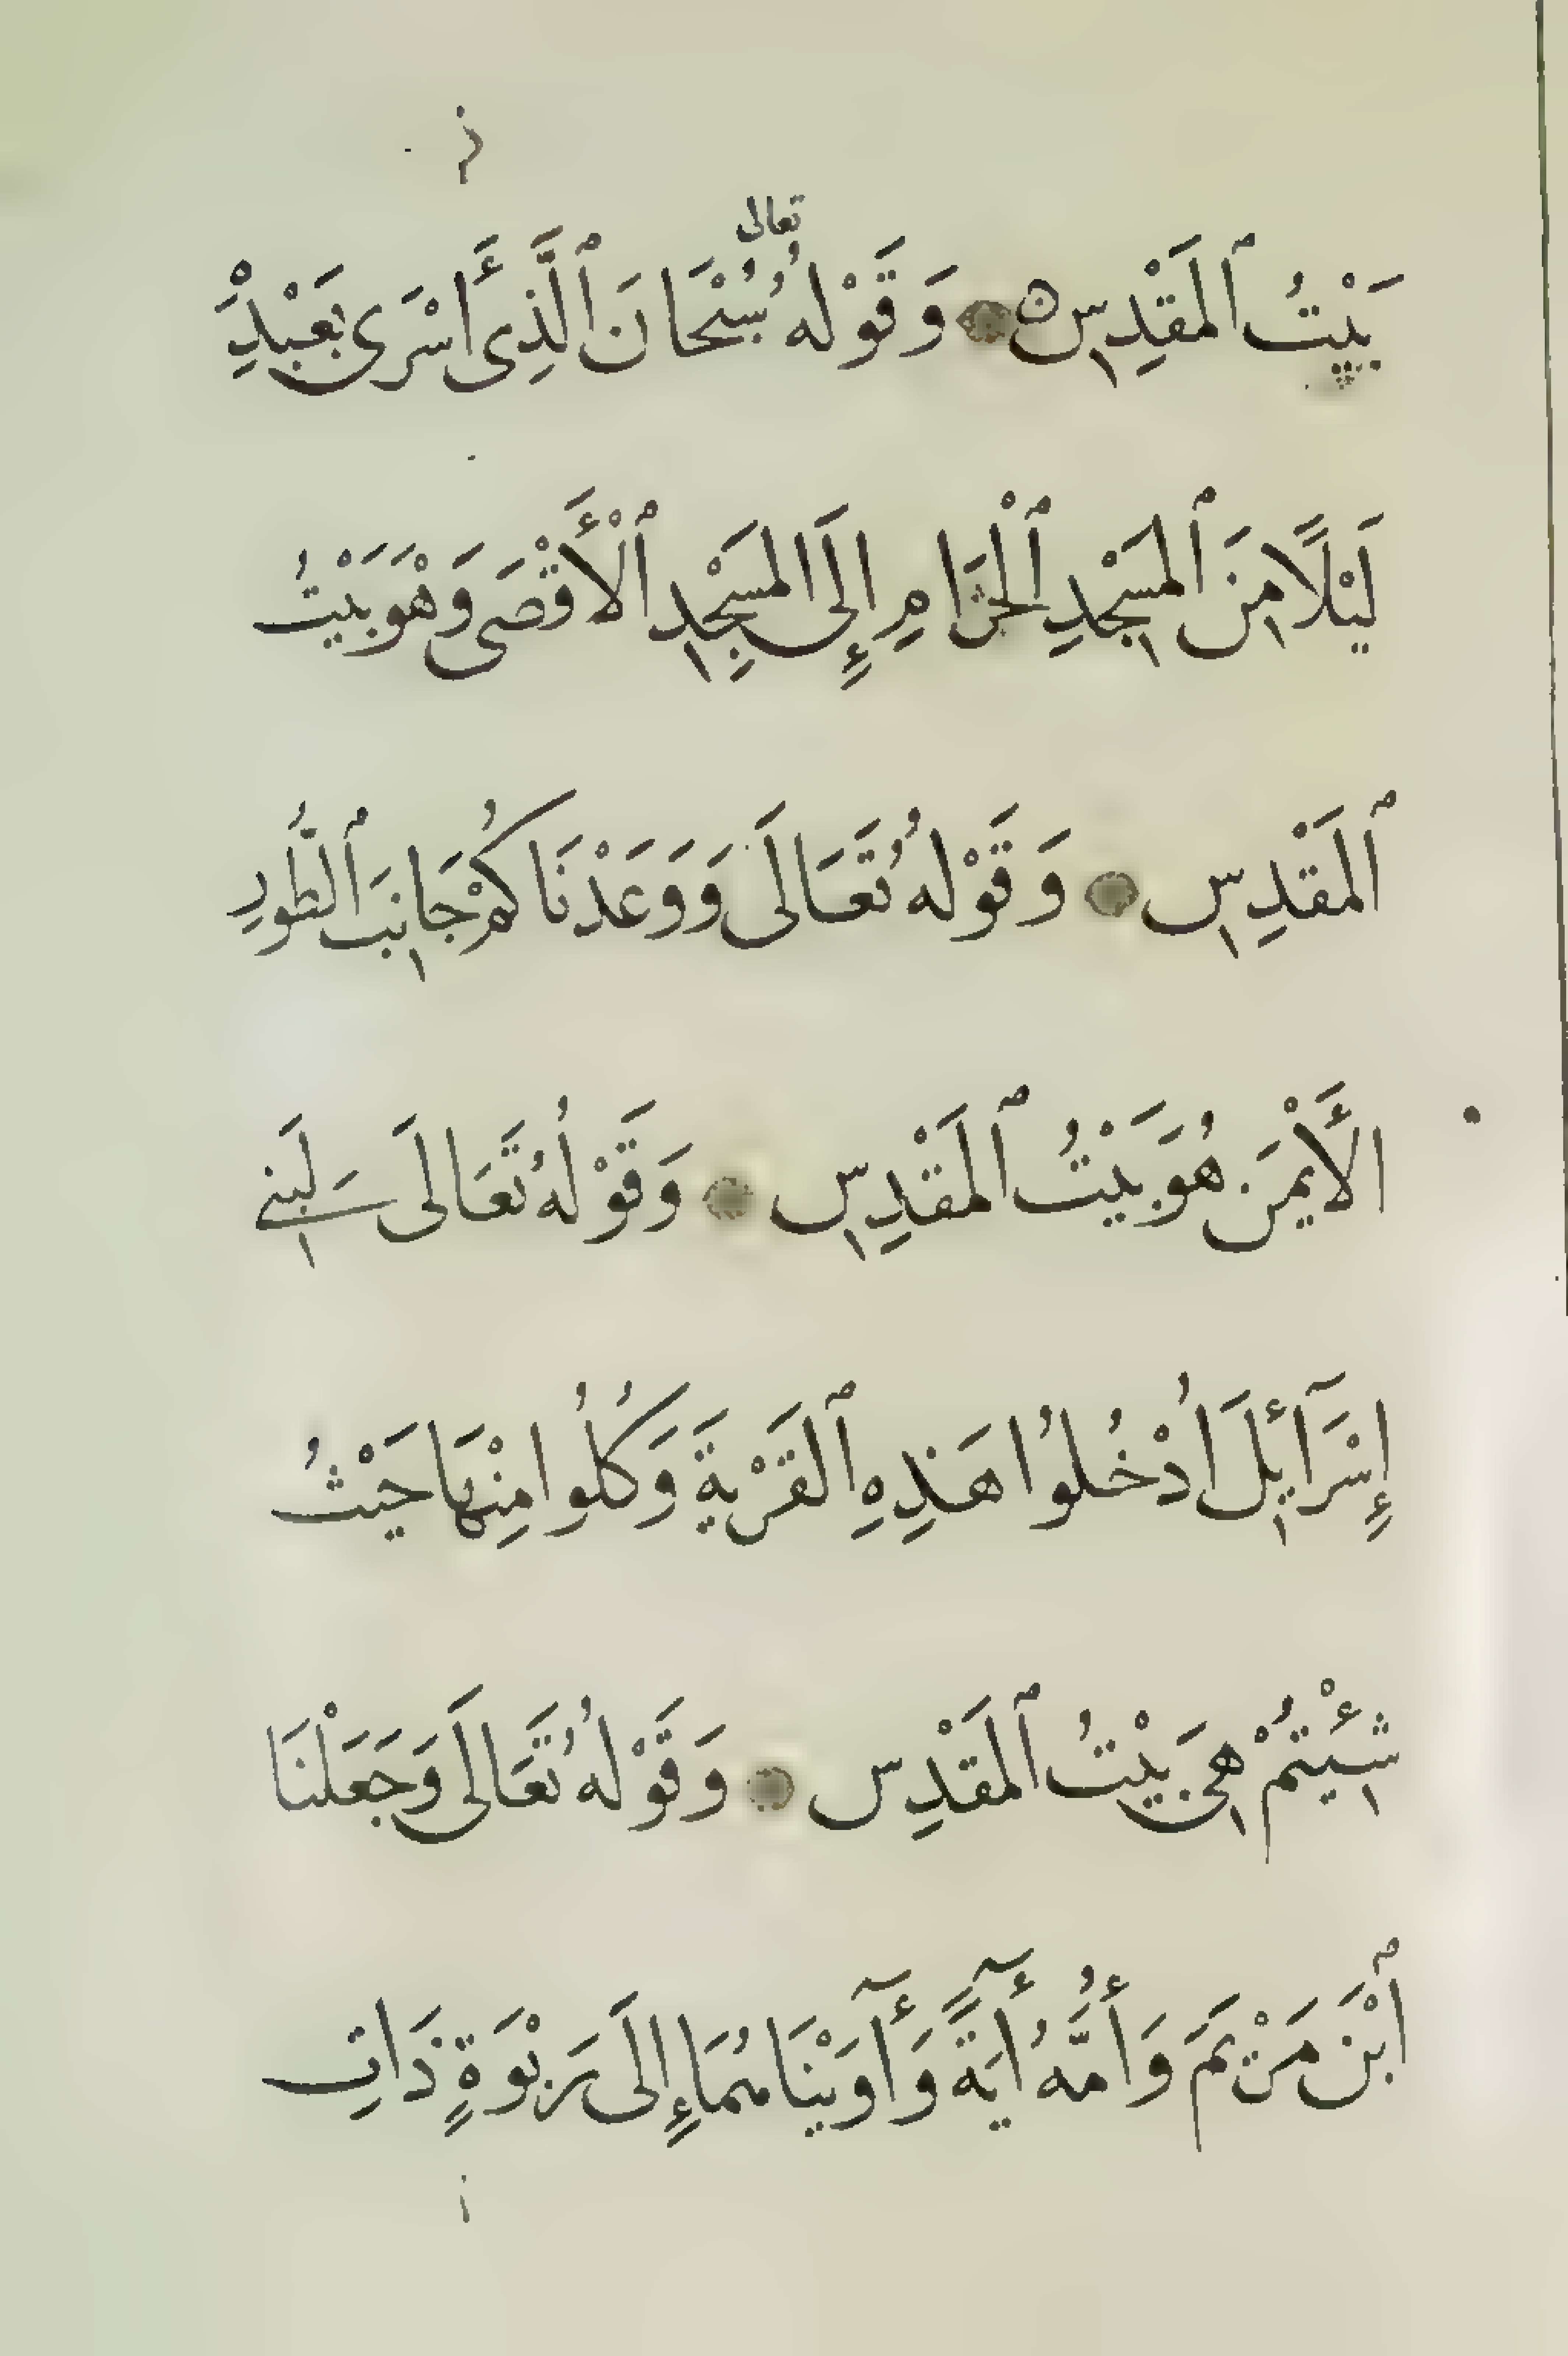 تعالى
بَيْتُ ٱلمَقْدِسِ وَقَوْلُهُ سُبْحَانَ ٱلَّذِى أَسْرَى بِعَبْدِهِ
لَيْلًا مِنَ ٱلمَسْجِدِ ٱلْحَرَامِ إِلَى المَسْجِدِ ٱلْأَقْصَى وَهْوَ بَيْتُ
ٱلمَقْدِسِ وَقَوْلُهُ تَعَالَى وَوَعَدْنَاكُمْ جَانِبَ ٱلطُّورِ
الْأَيْمَنَ هُوَ بَيْتُ ٱلمَقْدِسِ وَقَوْلُهُ تَعَالَى لِبَنِي
إِسْرَآئِلَ ادْخُلُوا هَذِهِ ٱلقَرْيَةَ وَكُلُوا مِنْهَا حَيْثُ
شِئْتُمْ هِىَ بَيْتُ ٱلمَقْدِسِ وَقَوْلُهُ تَعَالَى وَجَعَلْنَا
ٱبْنَ مَرْيَمَ وَأُمَّهُ أٓيَةً وَأٓوَيْنَاهُمَا إِلَى رَبْوَةٍ ذَاتِ